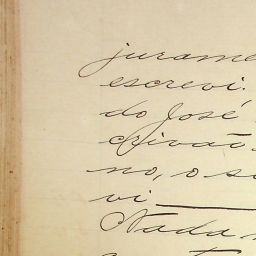 jurame
escrevi.
do José
crivão
no, o su
vi
Nada